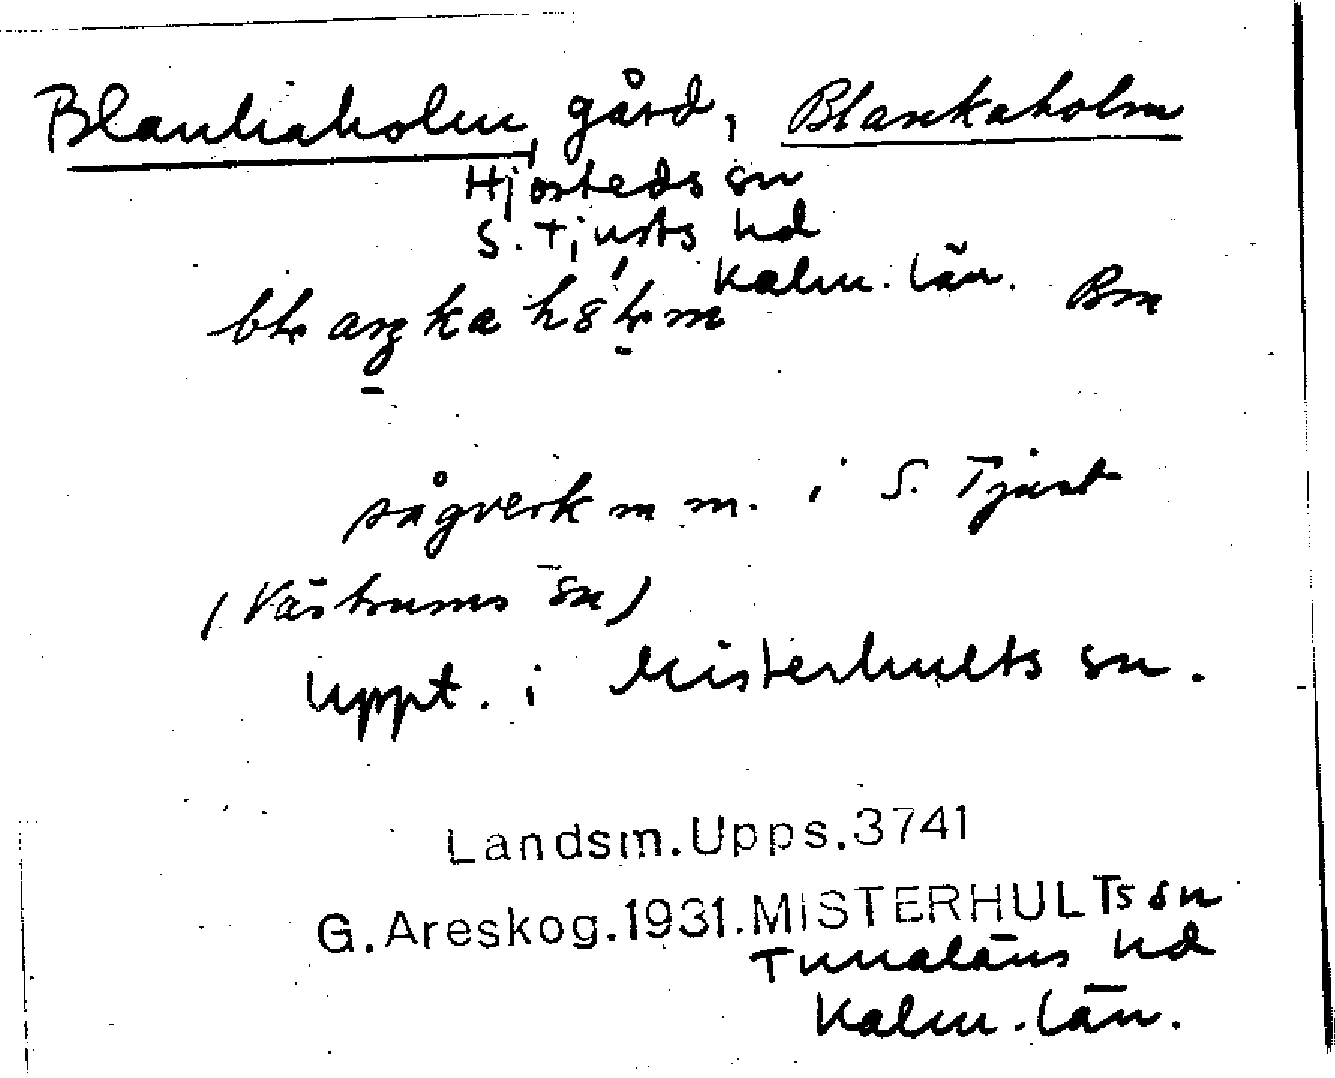 Blankaholm, gård, Blankaholm
Hjorteds sn
S. Tjusts hd
Kalm. län.
Bm
sågverk m m. i S. Tjust
(Västrums sn)
Uppt. i Misterhults sn.
Landsm.Upps.3741
G.Areskog.1931.MISTERHULTs sn
Tunaläns hd
Kalm. län.